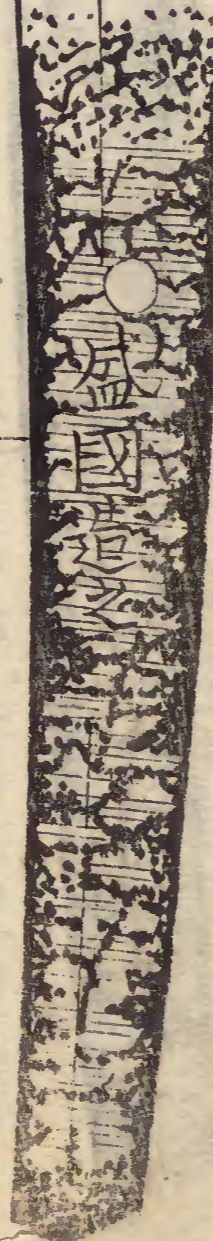 盛國造之